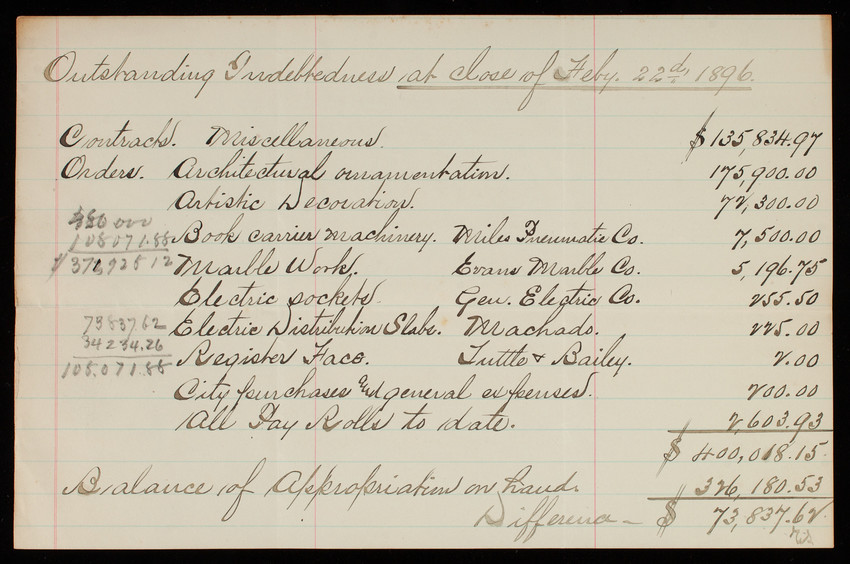 Outstanding Indebtedness at close of Feby. 22d, 1896.
Contracts. Miscellaneous. $135,834.97
Orders. Architectural ornamentation. 175,900.00
Artistic Decoration. 72,300.00
Book carrier machinery. Miles Pneumatic Co. 7,500.00
Marble Work. Evans Marble Co. 5,196.75
Electric sockets Gen. Electric Co. 255.50
Electric Distribution Slabs. Machado. 225.00
Register Face. Tuttle & Bailey. 2.00
City purchases and general expenses. 200.00
All Pay Rolls to date. 2,603.93
$ 400,018.15
Balance of Appropriation on hand. 326,180.53
Difference - $ 73,837.62
108071.88
$371928 12
73837.62
34234.26
108.071.88